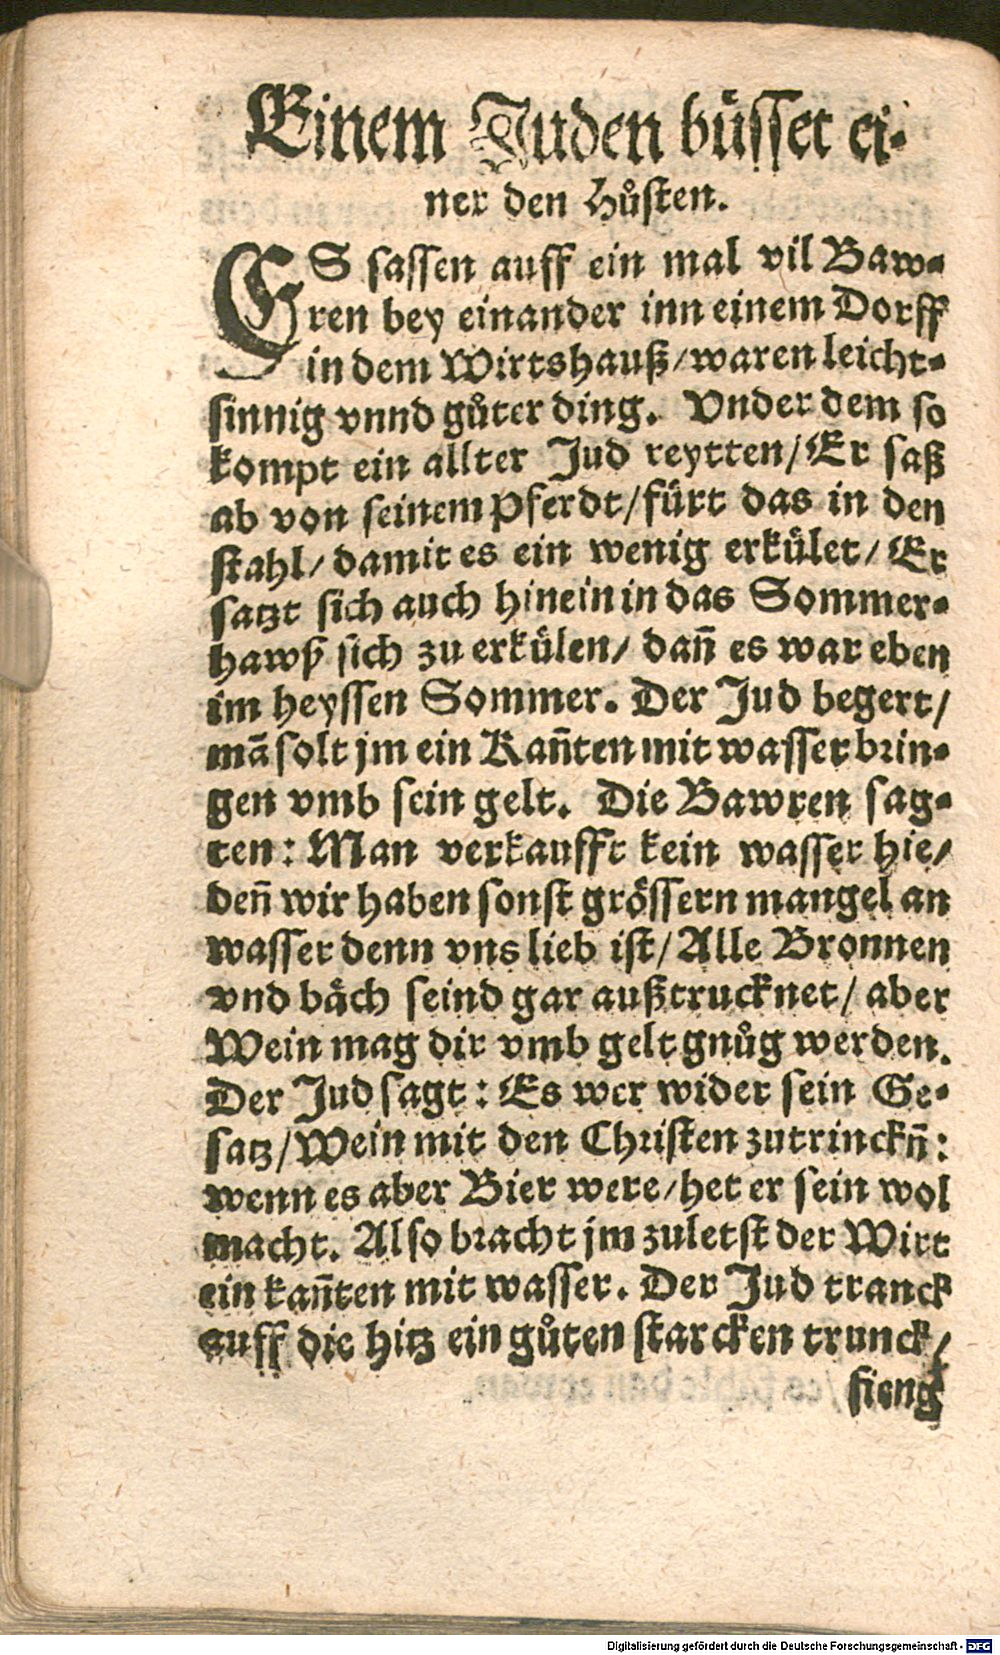 Einem Juden büsset ei-
ner den Hůsten.
ES sassen auff ein mal vil Baw-
ren bey einander inn einem Dorff
in dem Wirtshauß/waren leicht-
sinnig vnnd gůter ding. Vnder dem so
kompt ein allter Jud reytten/Er saß
ab von seinem Pferdt/fürt das in den
stahl/damit es ein wenig erkület/Er
satzt sich auch hinein in das Sommer-
hawß sich zu erkülen/dañ es war eben
im heyssen Sommer. Der Jud begert/
mã solt jm ein Kañten mit wasser brin-
gen vmb sein gelt. Die Bawren sag-
ten: Man verkaufft kein wasser hie/
deñ wir haben sonst grössern mangel an
wasser denn vns lieb ist/Alle Bronnen
vnd bäch seind gar außtrucknet/aber
Wein mag dir vmb gelt gnůg werden.
Der Jud sagt: Es wer wider sein Ge-
satz/Wein mit den Christen zutrinckñ:
wenn es aber Bier were/het er sein wol
macht. Also bracht jm zuletst der Wirt
ein kañten mit wasser. Der Jud tranck
auff die hitz ein gůten starcken trunck/
fieng
Digitalisierung gefördert durch die Deutsche Forschungsgemeinschaft - DFG